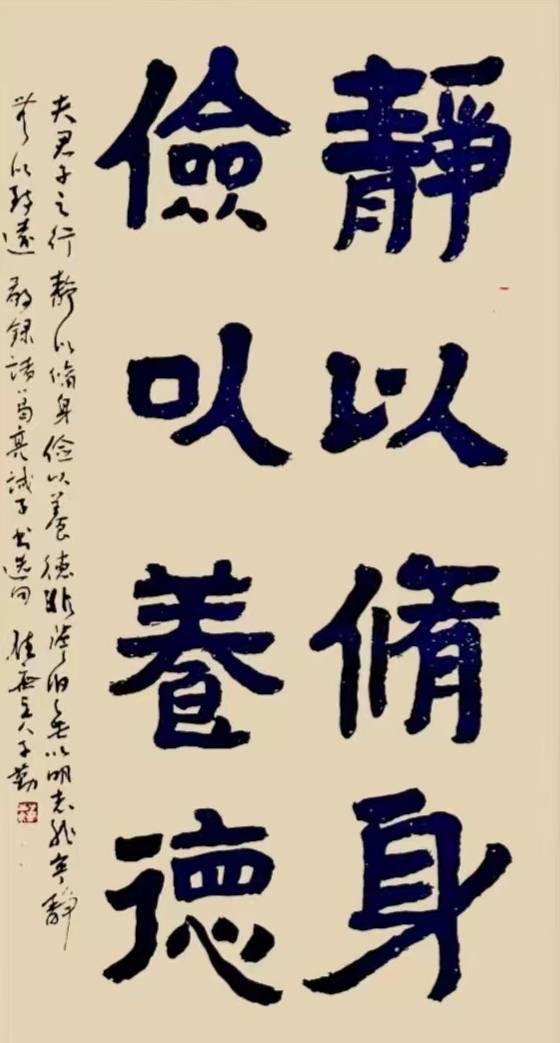 靜以脩身
儉以養德
夫君子之行靜以脩身儉以養德非澹泊無以明志非寧靜
無以致遠 敬錄諸葛亮誡子書選句 主人子勤